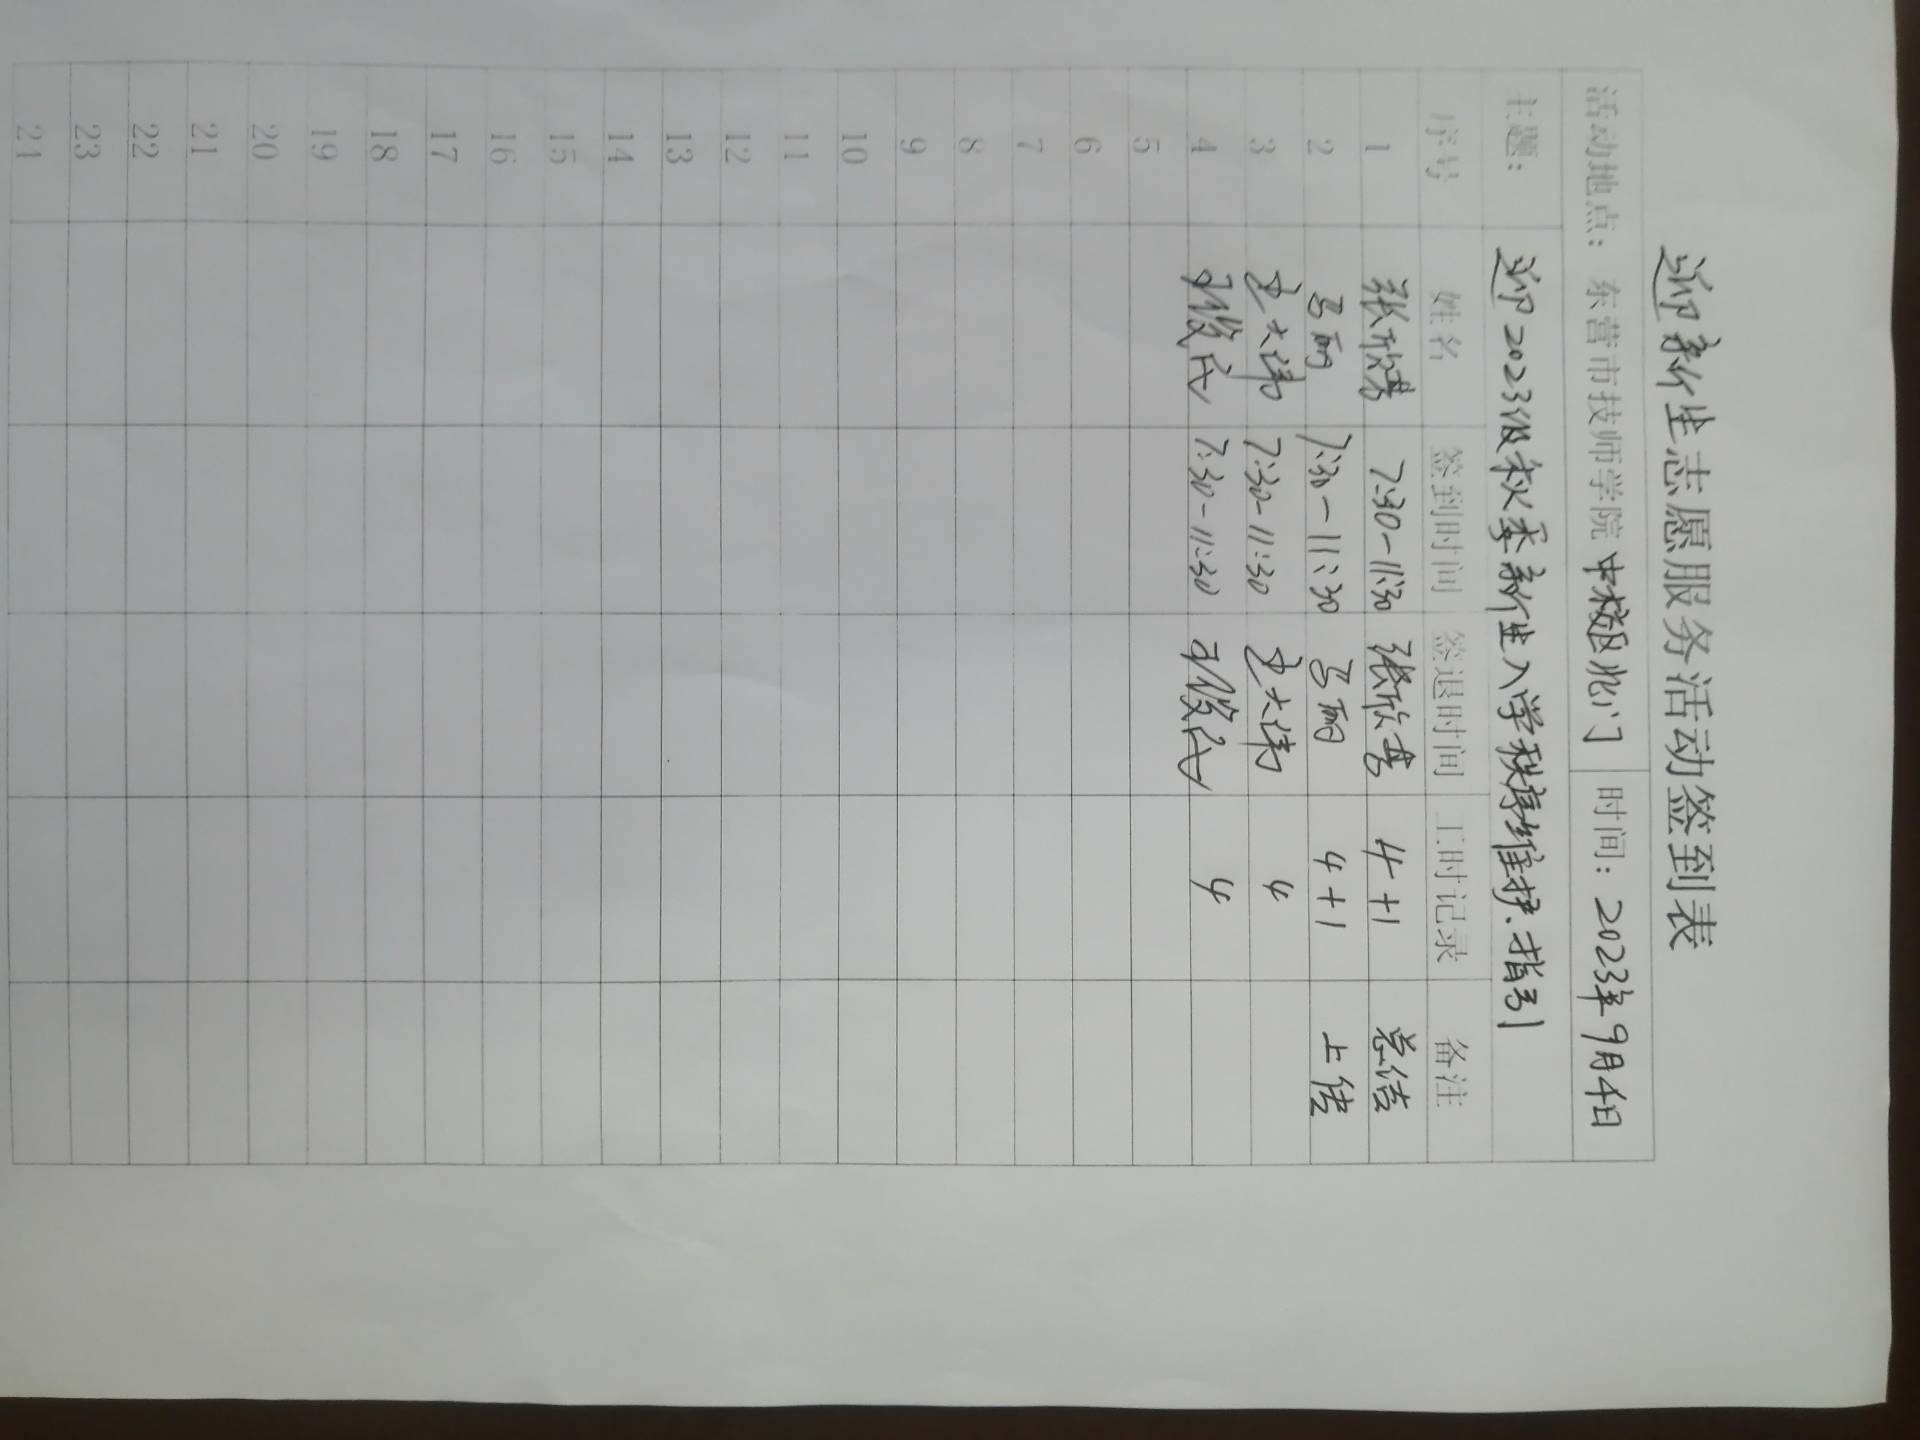 迎新生志愿服务活动签到表
活动地点：东营市技师学院 中校区北门 时间：2023年9月4日
主题： 迎2023级秋季新生入学秩序维护、指引
序号 姓名 签到时间 签退时间 工时记录 备注
1 7:30-11:30 4+1 总结
2 马丽 7:30-11:30 马丽 4+1 上传
3 7:30-11:30 4
4 7:30-11:30 4
5
6
7
8
9
10
11
12
13
14
15
16
17
18
19
20
21
22
23
21